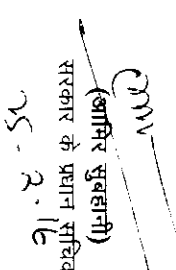 (आमिर सुबहानी)
सरकार के प्रधान सचिव
25.2.16